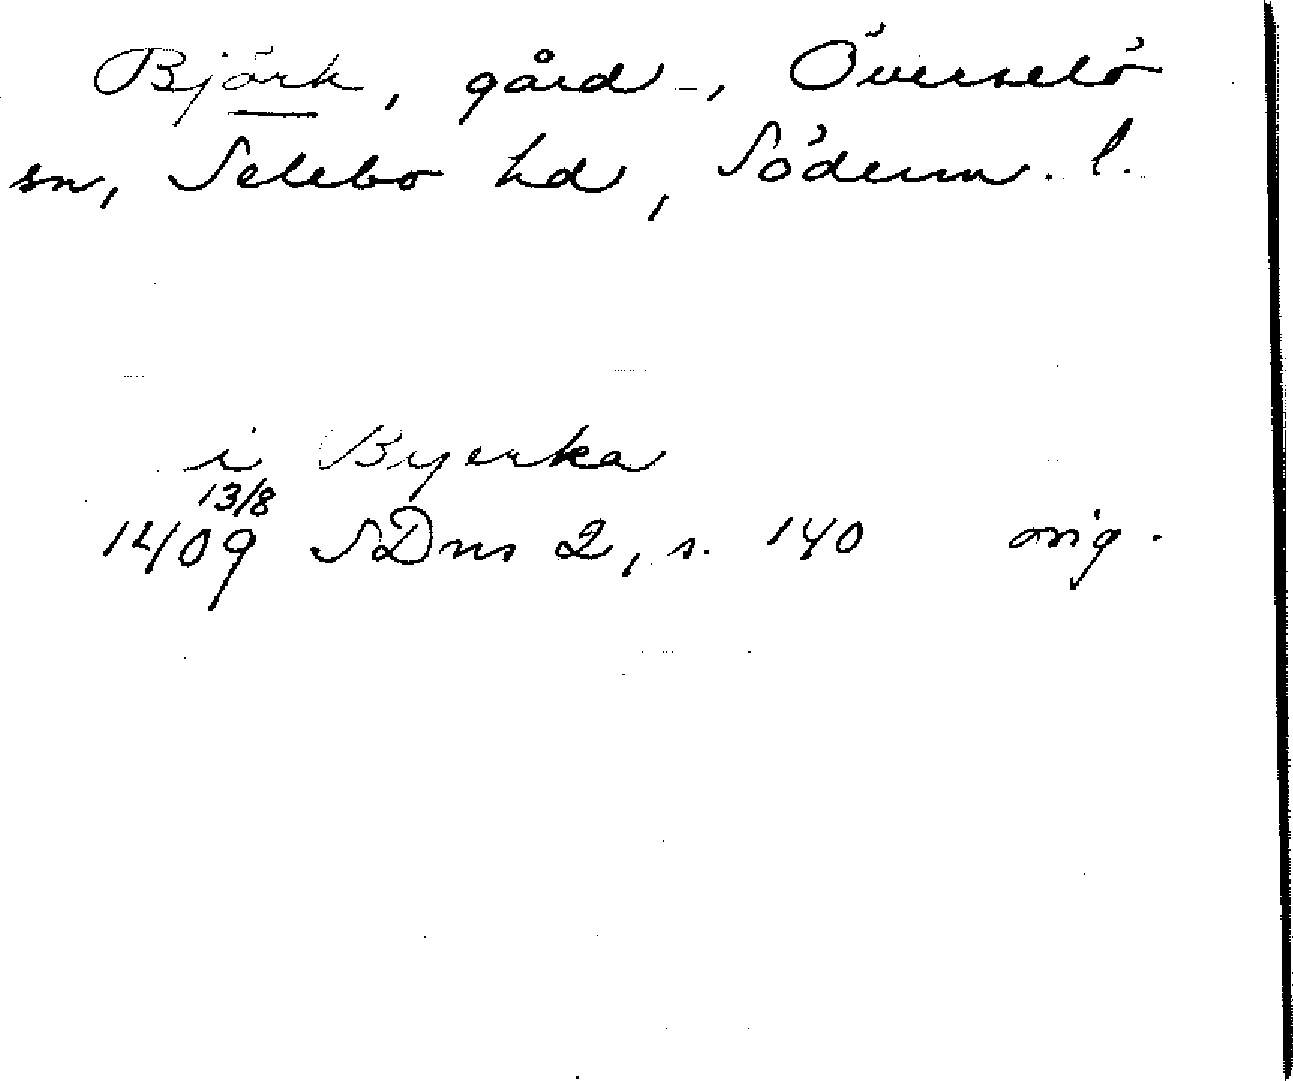 Björk, gård -, Överselö
sn, Selebo hd, Söderm. l.
i Byerka
13/8
1409 SDns 2, s. 140 orig.